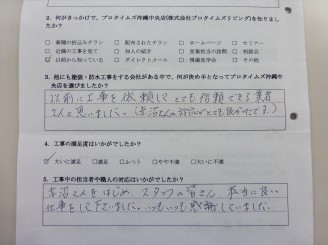 2. 何がきっかけで、プロタイムズ沖縄中央店(株式会社プロタイムズリビング)を知りましたか?
□ 新聞の折込みチラシ □ 配布されたチラシ □ ホームページ □ セミナー
□ 近隣の工事を見て □ 知人の紹介 □ 営業担当の訪問 □ 相談会
☑ 以前から知っている □ ダイレクトメール □ 現場見学会 □ その他
3. 他にも塗装・防水工事をする会社がある中で、何が決め手となってプロタイムズ沖縄中
央店を選びましたか?
以前に工事を依頼してとても信頼できる業者
さんと思いました。(赤沼さんの対応がとても良かったです。)
4. 工事の満足度はいかがでしたか?
☑ 大いに満足 □ 満足 □ ふつう □ やや不満 □ 大いに不満
5. 工事中の担当者や職人の対応はいかがでしたか?
赤沼さんをはじめ、スタッフの皆さん 本当に良い
仕事をして下さいました。いつもいつも感謝しています。